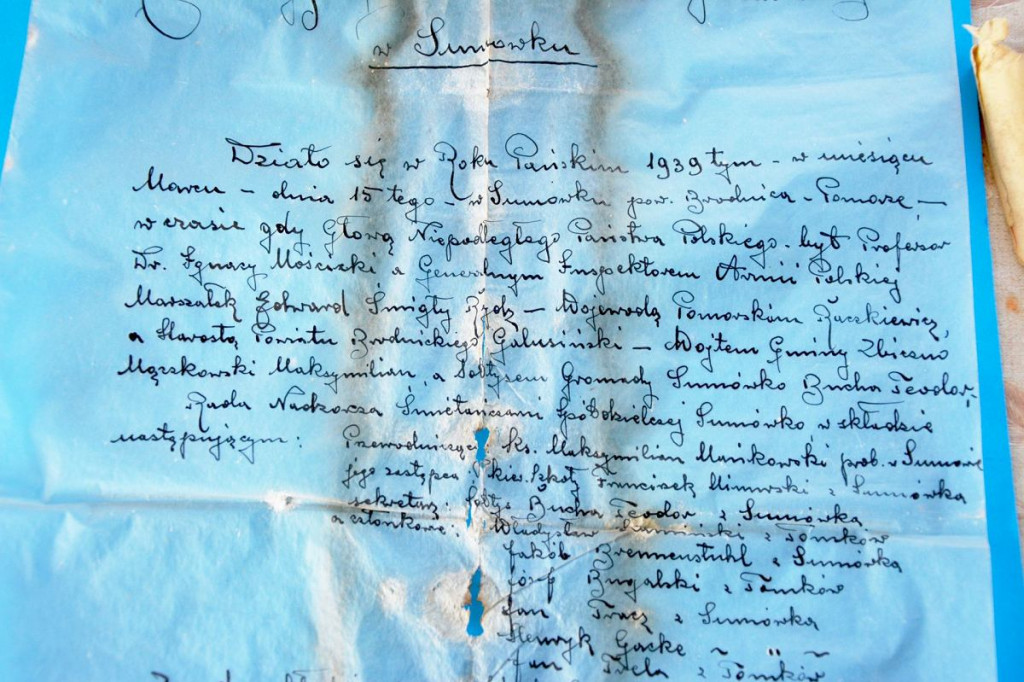 w Sumówku
Działo się w Roku Pańskim 1939 tym - w miesiącu
Marcu - dnia 15 tego - w Sumówku pow. Brodnica - Pomorze -
w czasie gdy Głową Niepodległego Państwa Polskiego był Profesor
Dr. Ignacy Mościcki a Generalnym Inspektorem Armii Polskiej
Marszałek Edward Śmigły Rydz - Wojewodą Pomorskim Raczkiewicz,
a Starostą Powiatu Brodnickiego Galusiński - Wójtem Gminy Zbiczno
Maksymilian, a Sołtysem Gromady Sumówko Bucha Teodor,-
Rada Nadzorcza Spółdzielczej Sumówko, w składzie
następującym: Przewodniczący ks. Maksymilian Mańkowski prob. w Sumowie
jego zastępca kier. Szkoły Franciszek z Sumówka
sekretarz: Sołtys Bucha Teodor z Sumówka
a członkowie: Władysław Kamiński z Tomków
Jakób Brennenstuhl z Sumówka
Józef Bugalski z Tomków
Jan Tracz z Sumówka
Henryk Gacke ~ " ~
Jan z Tomków